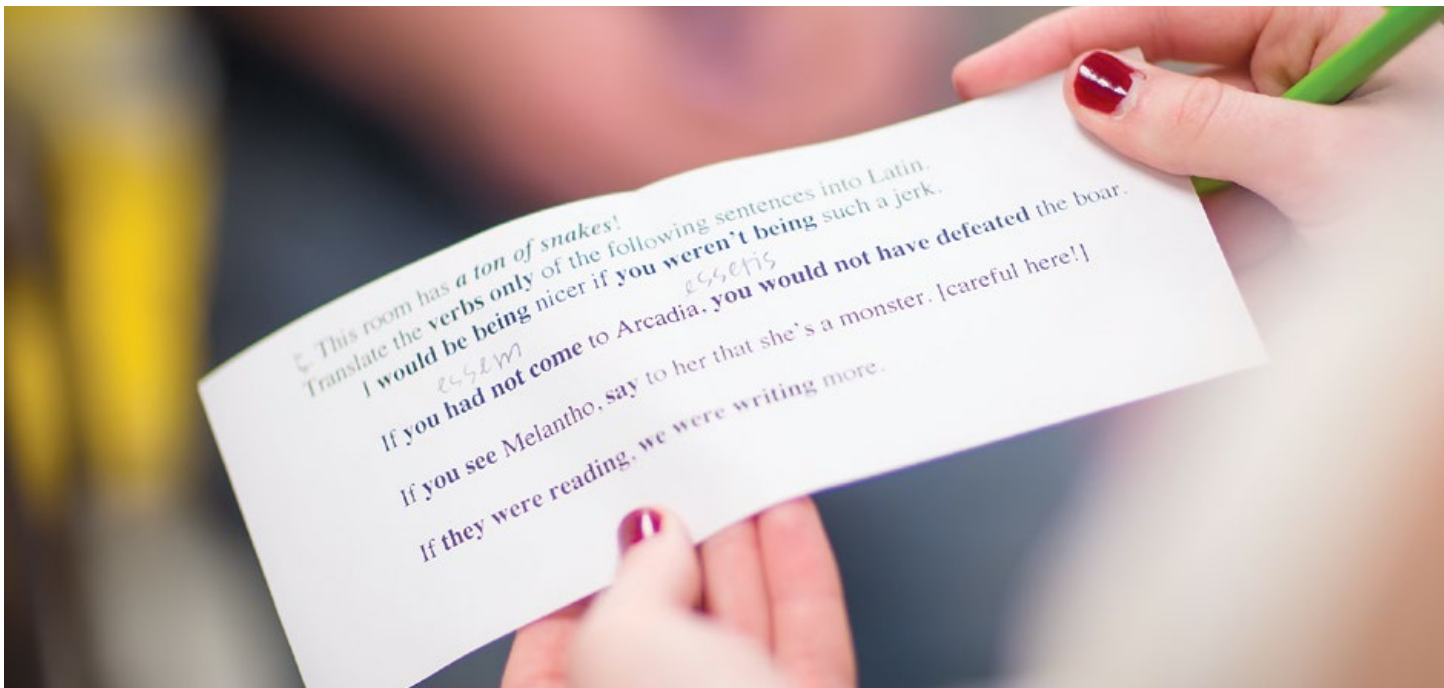 This room has a ton of snakes!
Translate the verbs only of the following sentences into Latin.
I would be being nicer if you weren't being such a jerk.
essem essetis
If you had not come to Arcadia, you would not have defeated the boar.
If you see Melantho, say to her that she's a monster. [careful here!]
If they were reading, we were writing more.